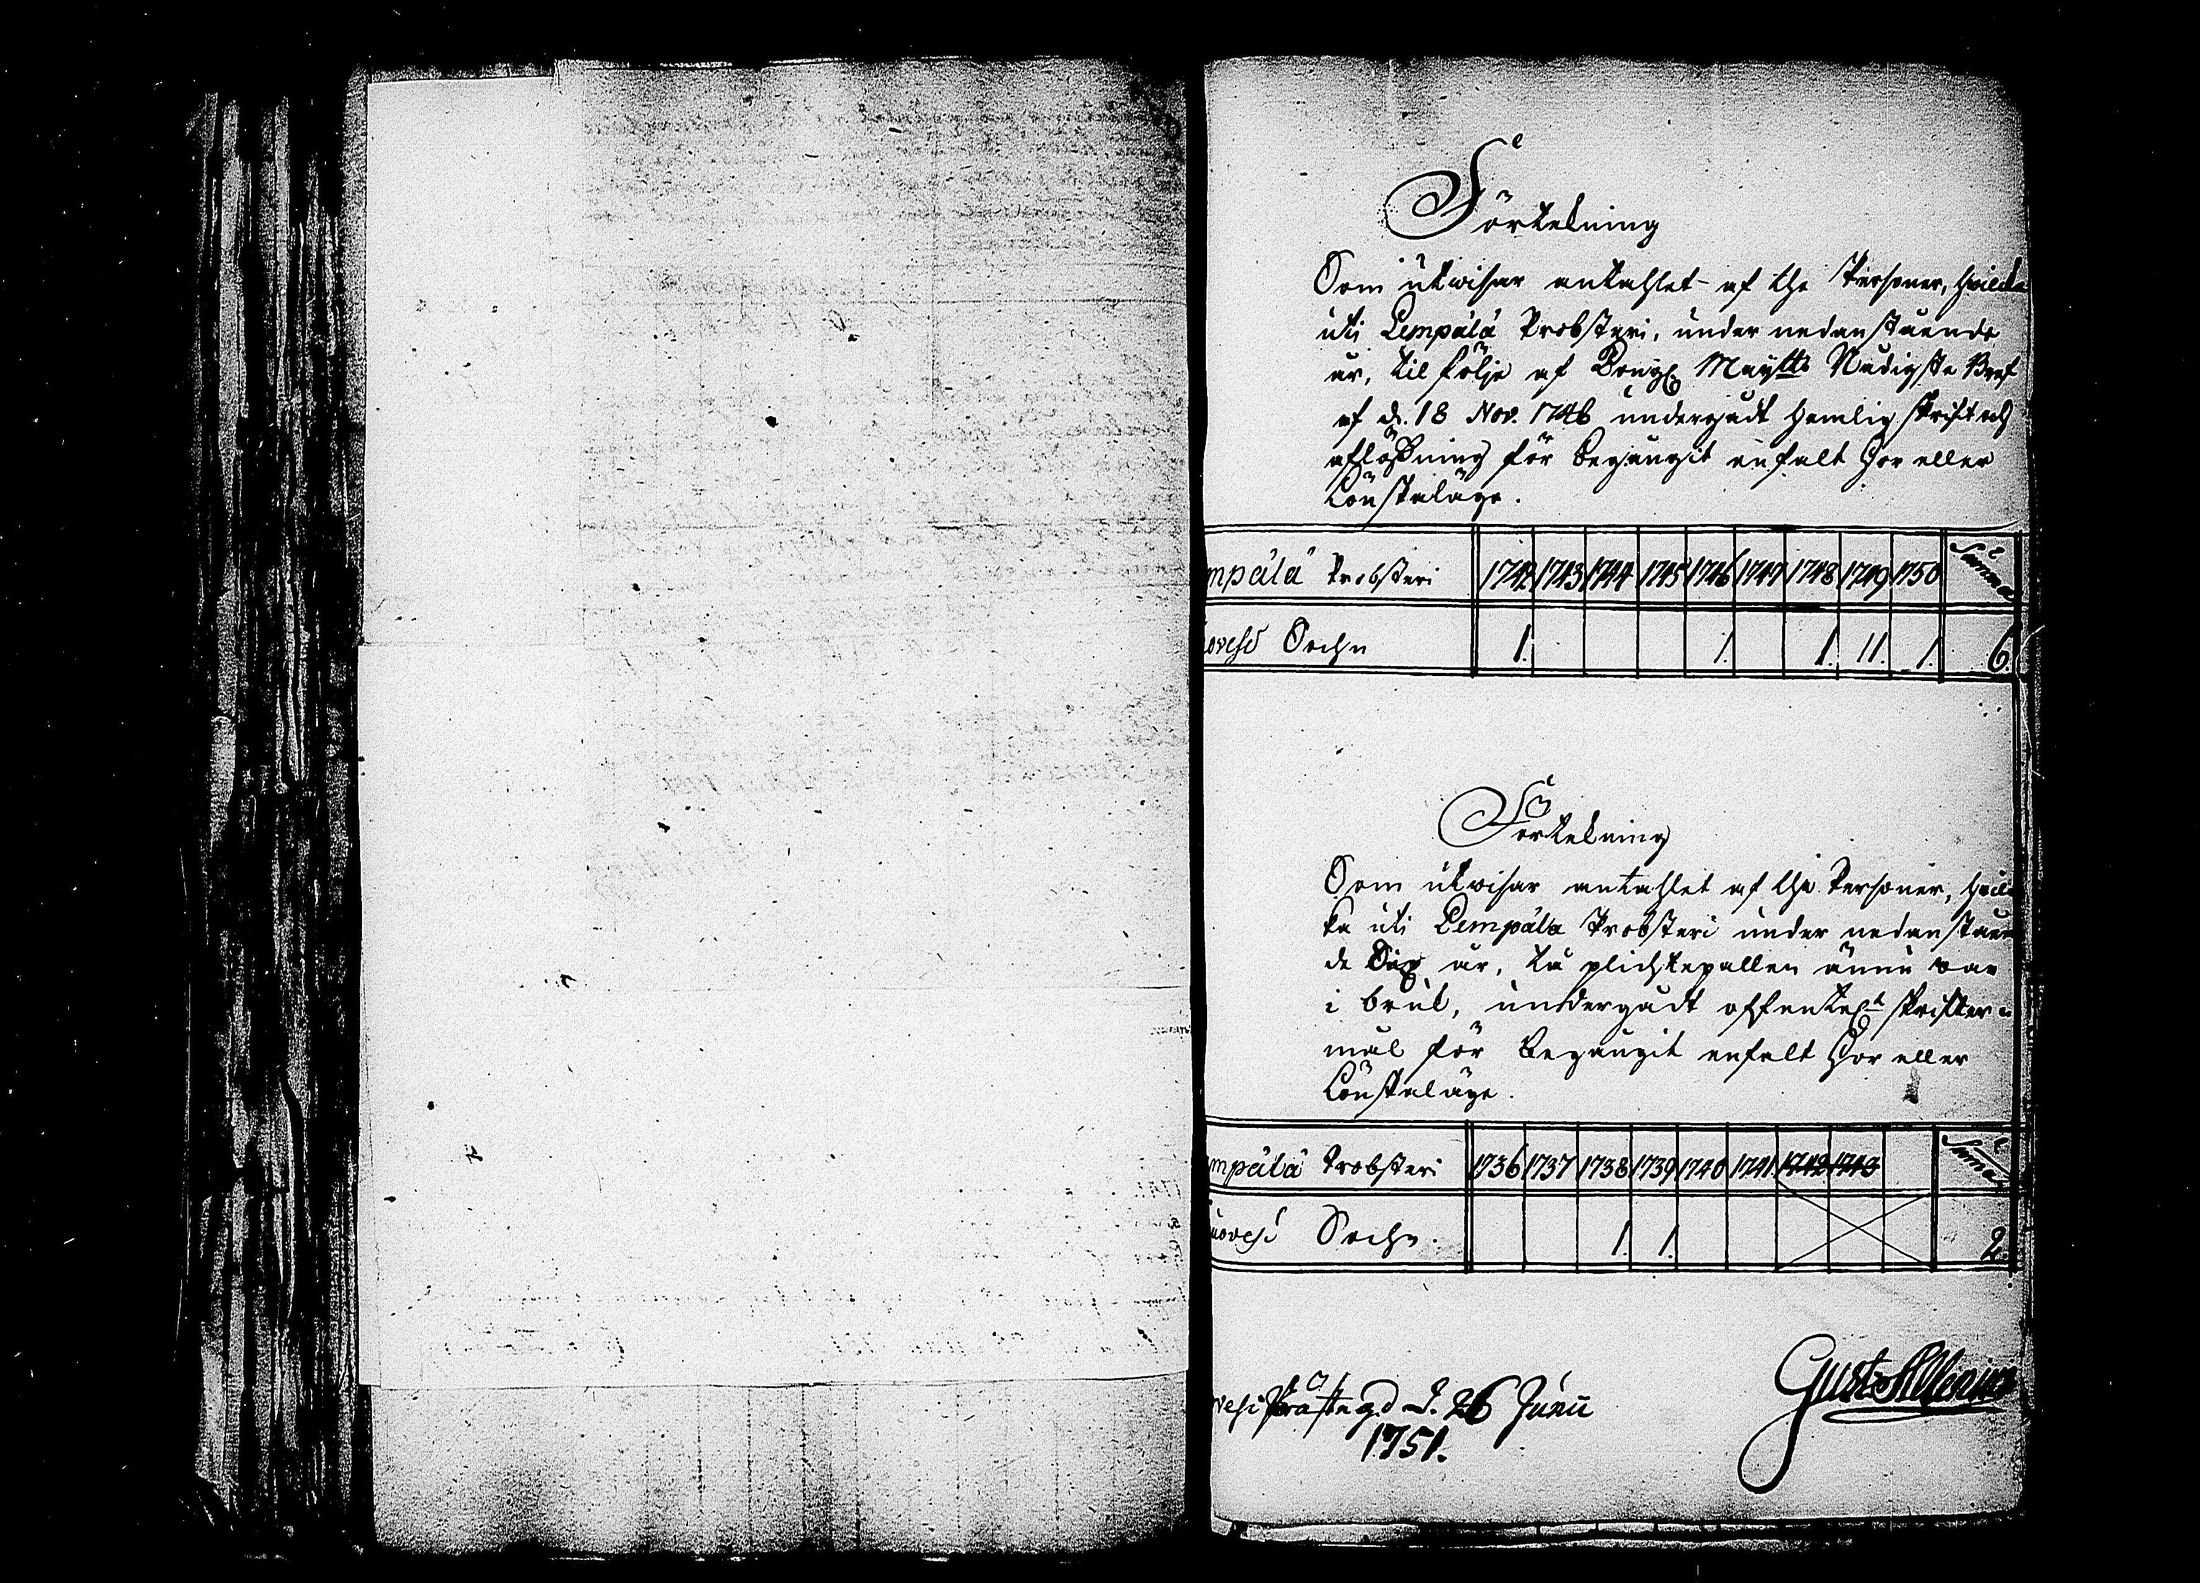 Förtekning
Som utwisar antahlet af the Personer, hwilka
uti Lempälä Probsteri, under nedanstående
år, til följe af Kongl Mayttz Nådigste Bref
af d. 18 Nov. 1746 undergådt hemlig skrift och
aflösning för begångit enfalt hor eller
Lönskaläge.
mpälä Probsteri 1742 1743 1744 1745 1746 1747 1748 1749 1750 Summa
ovesi Sochn 1. 1. 1. 11. 1. 6.
Förtekning
Som utwisar antahlet af the Personer, hwil
ka uti Lempälä Probsteri under nedanståen
de Sex år, tå plichtepallen ännu war
i bruk, undergådt offentel. skrifter
mål för begångit enfalt hor eller
Lönskaläge.
mpälä Probsteri 1736 1737 1738 1739 1740 1741 1742 1743 Summa
uovesi Sochn. 1. 1. 2.
vesi Prästegd d. 26 Junii
1751.